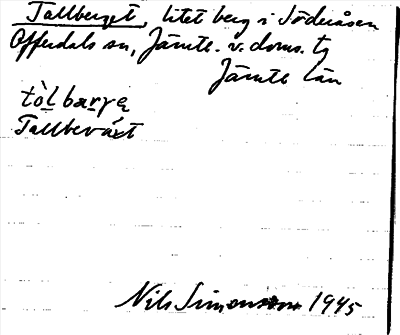 Tallberget, litet berg i Söderåsen
Offerdals sn, Jämtl. v. doms. tg
Jämtl län
tòl barge
Tallbeväxt
Nils Simonsson 1945